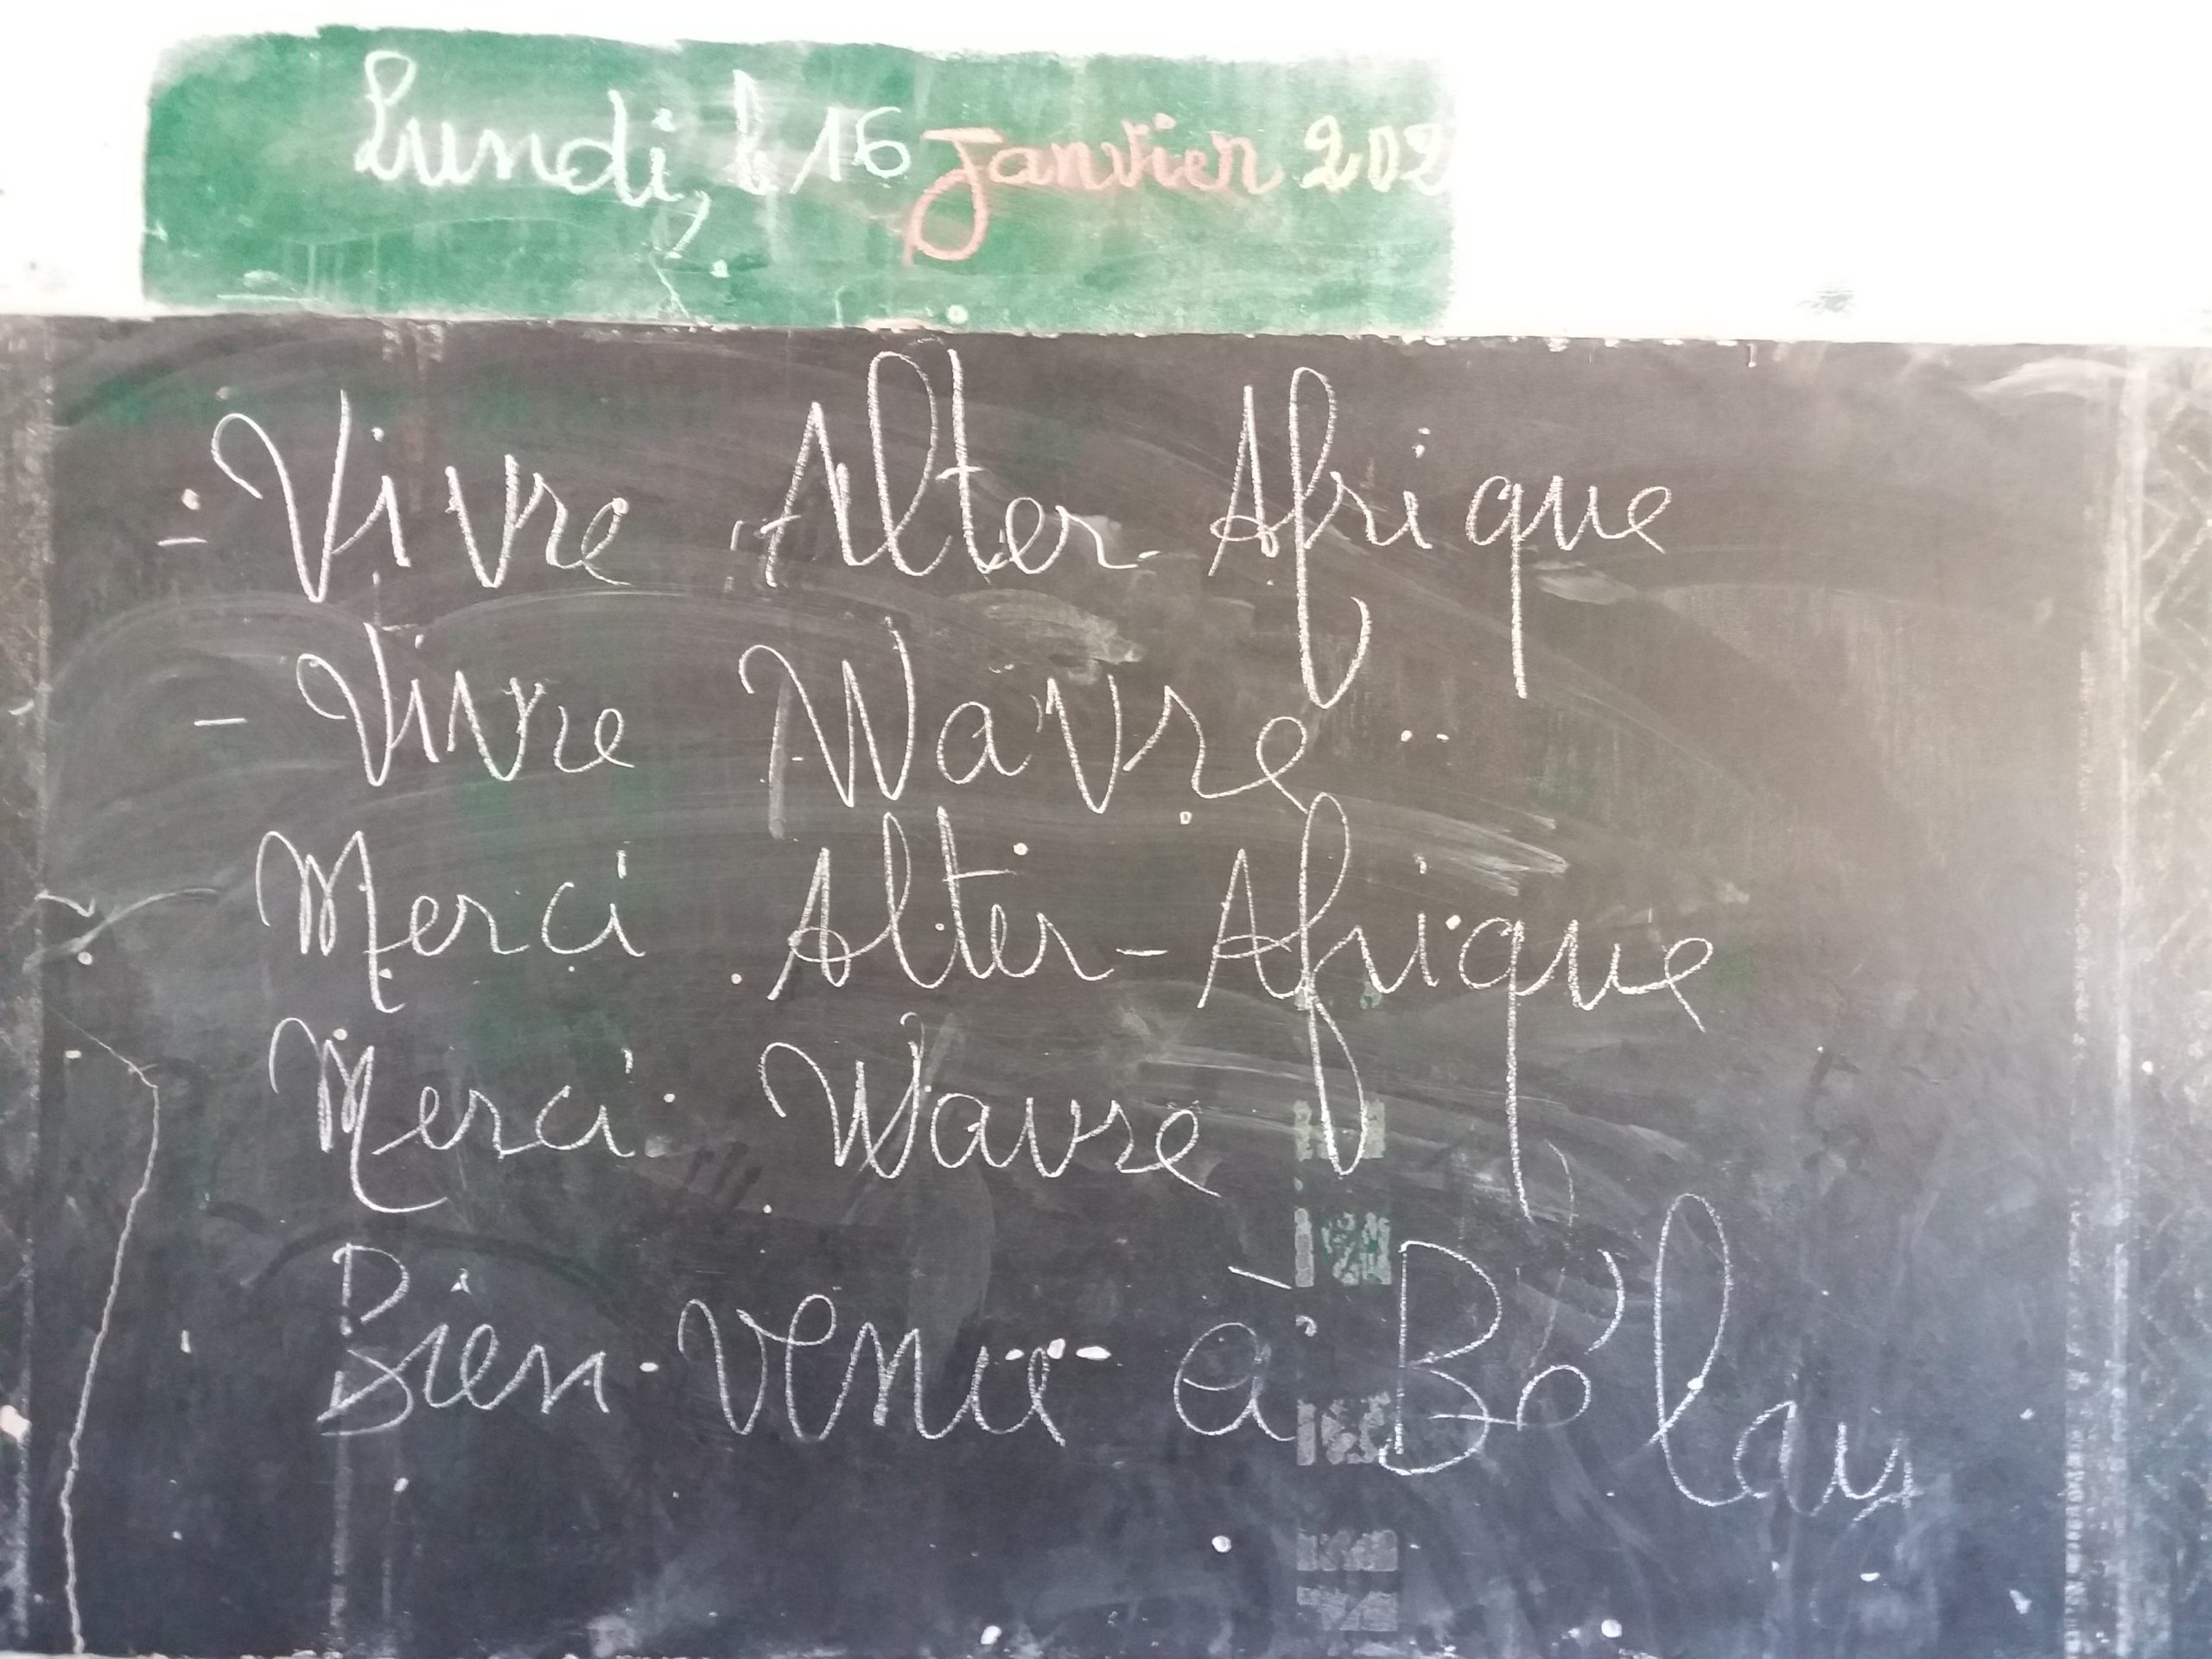 Lundi, le 16 Janvier 202
- Vivre Alter-Afrique
- Vivre Wavre
Merci Alter-Afrique
Merci Wavre
Bien-venue à